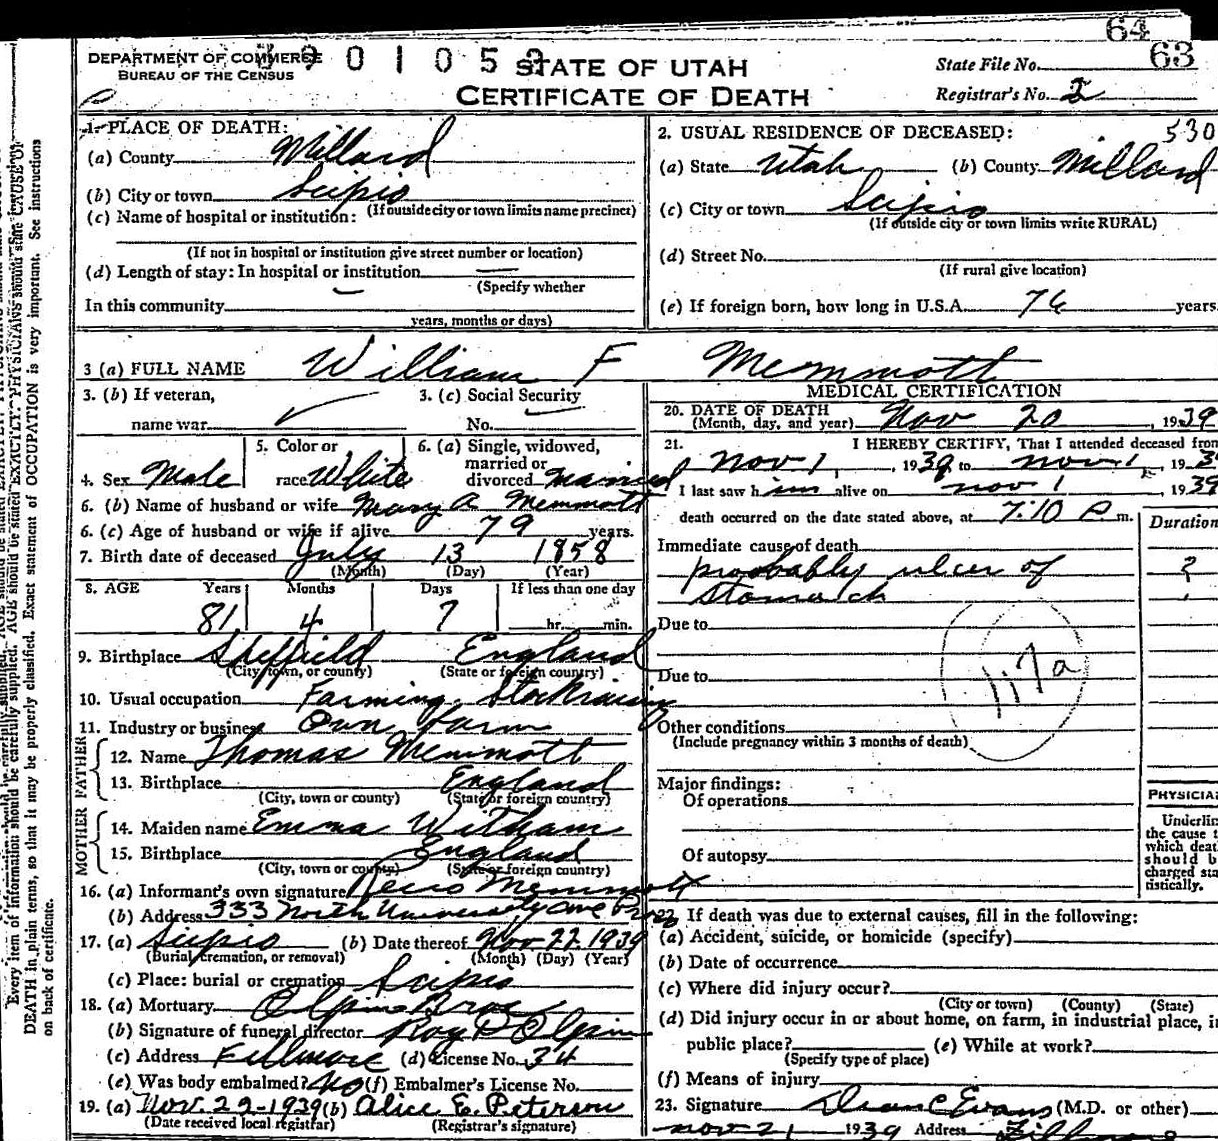 64
DEPARTMENT OF COMMERCE
BUREAU OF THE CENSUS
3901053
STATE OF UTAH
CERTIFICATE OF DEATH
State File No. 63
Registrar's No. 2
1. PLACE OF DEATH:
(a) County Millard
(b) City or town Scipio
(If outside city or town limits name precinct)
(c) Name of hospital or institution:
(If not in hospital or institution give street number or location)
(d) Length of stay: In hospital or institution —
(Specify whether
In this community
years, months or days)
2. USUAL RESIDENCE OF DECEASED: 530
(a) State Utah (b) County Millard
(c) City or town Scipio
(If outside city or town limits write RURAL)
(d) Street No.
(If rural give location)
(e) If foreign born, how long in U.S.A. 76 years.
3 (a) FULL NAME William F Memmott
3. (b) If veteran,
name war
3. (c) Social Security
No.
4. Sex Male
5. Color or
race White
6. (a) Single, widowed,
married or
divorced Married
6. (b) Name of husband or wife Mary A Memmott
6. (c) Age of husband or wife if alive 79 years.
7. Birth date of deceased July 13 1858
(Month) (Day) (Year)
8. AGE Years Months Days If less than one day
81 4 7 hr. min.
9. Birthplace Sheffield England
(City, town, or county) (State or foreign country)
10. Usual occupation Farming, Stockraising
11. Industry or business Own farm
FATHER
12. Name Thomas Memmott
13. Birthplace England
(City, town or county) (State or foreign country)
MOTHER
14. Maiden name Emma Witham
15. Birthplace England
(City, town or county) (State or foreign country)
16. (a) Informant's own signature Memmott
(b) Address 333 North University ave Provo
17. (a) Scipio (b) Date thereof Nov 22 1939
(Burial, cremation, or removal) (Month) (Day) (Year)
(c) Place: burial or cremation Scipio
18. (a) Mortuary Olpin Bros
(b) Signature of funeral director Roy D Olpin
(c) Address Fillmore (d) License No. 34
(e) Was body embalmed? No (f) Embalmer's License No.
19. (a) Nov. 22-1939 (b) Alice E. Peterson
(Date received local registrar) (Registrar's signature)
MEDICAL CERTIFICATION
20. DATE OF DEATH
(Month, day, and year) Nov 20, 1939
21. I HEREBY CERTIFY, That I attended deceased from
Nov 1, 1939 to Nov 1, 193
I last saw him alive on nov 1, 1939
death occurred on the date stated above, at 7:10 P. m.
Duration
Immediate cause of death
probably ulcer of ?
stomach
Due to
117a
Due to
Other conditions
(Include pregnancy within 3 months of death)
Major findings:
Of operations
Of autopsy
PHYSICIA
Underlin
the cause t
which deat
should b
charged sta
tistically.
22. If death was due to external causes, fill in the following:
(a) Accident, suicide, or homicide (specify)
(b) Date of occurrence
(c) Where did injury occur?
(City or town) (County) (State)
(d) Did injury occur in or about home, on farm, in industrial place, i
public place? (e) While at work?
(Specify type of place)
(f) Means of injury
23. Signature Dean C Evans (M.D. or other)
nov 21 1939 Address Fillmore
Every item of information should be carefully supplied. AGE should be stated EXACTLY. PHYSICIANS should state CAUSE OF
DEATH in plain terms, so that it may be properly classified. Exact statement of OCCUPATION is very important. See instructions
on back of certificate.